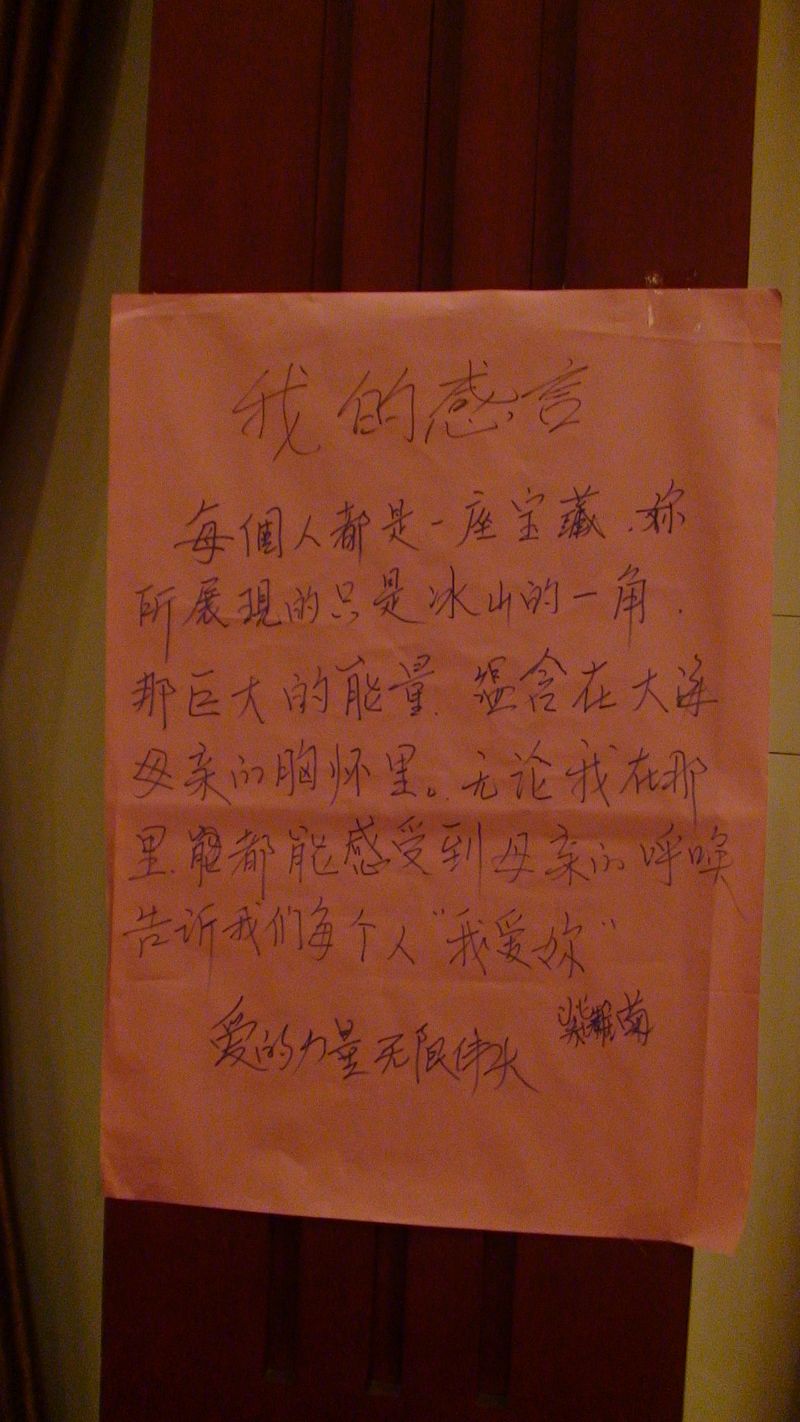 我的感言
每個人都是一座宝藏.妳
所展現的只是冰山的一角.
那巨大的能量.蕴含在大海
母亲的胸怀里。无论我在那
里.都能感受到母亲的呼唤
告诉我们每个人“我爱妳”
爱的力量无限伟大